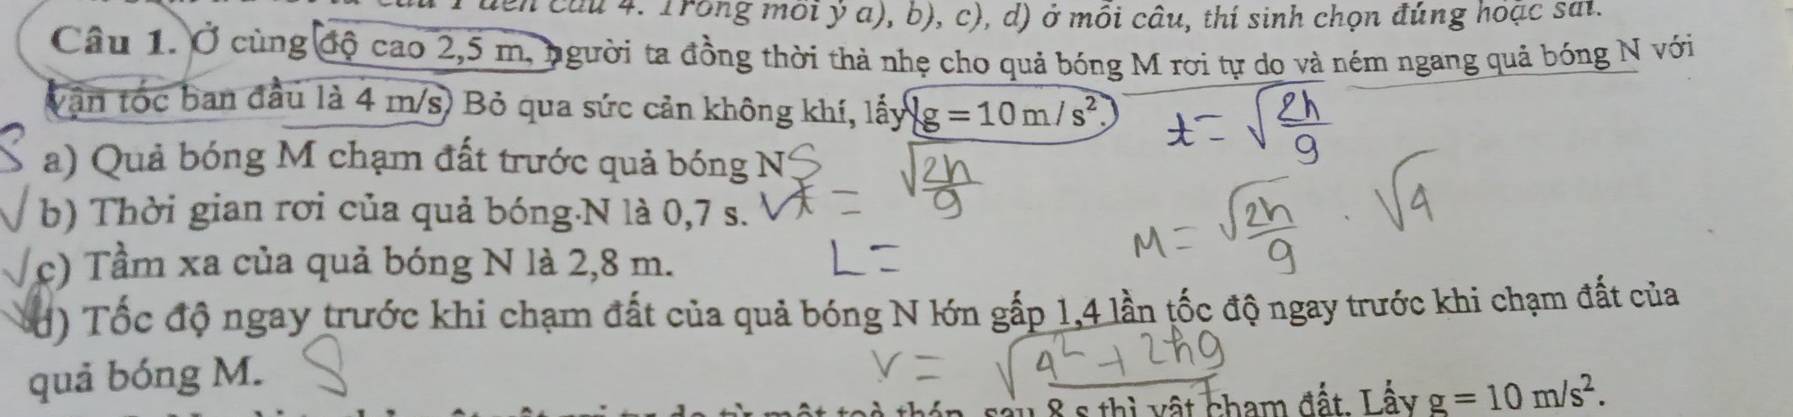 câu 4. Trong mỗi ý a), b), c), d) ở mỗi câu, thí sinh chọn đúng hoặc sai.
Câu 1. Ở cùng độ cao 2,5 m, người ta đồng thời thả nhẹ cho quả bóng M rơi tự do và ném ngang quả bóng N với
vận tốc ban đầu là 4 m/s. Bỏ qua sức cản không khí, lấy g = 10 m/s².
t = √(2h/g)
S a) Quả bóng M chạm đất trước quả bóng N S
√ b) Thời gian rơi của quả bóng N là 0,7 s. √ t = √(2h/g)
M = √(2h/g) . √4
√ c) Tầm xa của quả bóng N là 2,8 m. L =
d) Tốc độ ngay trước khi chạm đất của quả bóng N lớn gấp 1,4 lần tốc độ ngay trước khi chạm đất của
quả bóng M. S v = √(4² + 2hg)
sau 8 s thì vật chạm đất. Lấy g = 10 m/s².